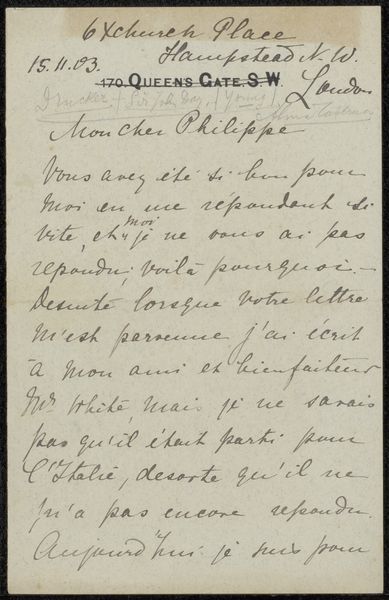 6 church Place
Hampstead N.W.
15.11.03.
170 QUEENS GATE. S.W.
London
Drucker / Sir John Day / Young /
Alma Tadema
Mon cher Philippe
Vous avez été si bon pour
moi en me répondant si
vite, et moi je ne vous ai pas
repondu; voilà pourquoi. —
Desuite lorsque votre lettre
m'est parvenue j'ai écrit
à mon ami et bienfaiteur
Mr White, mais je ne savais
pas qu'il était parti pour
l'Italie, desorte qu'il ne
m'a pas encore repondu.
Aujourd'hui je suis pour